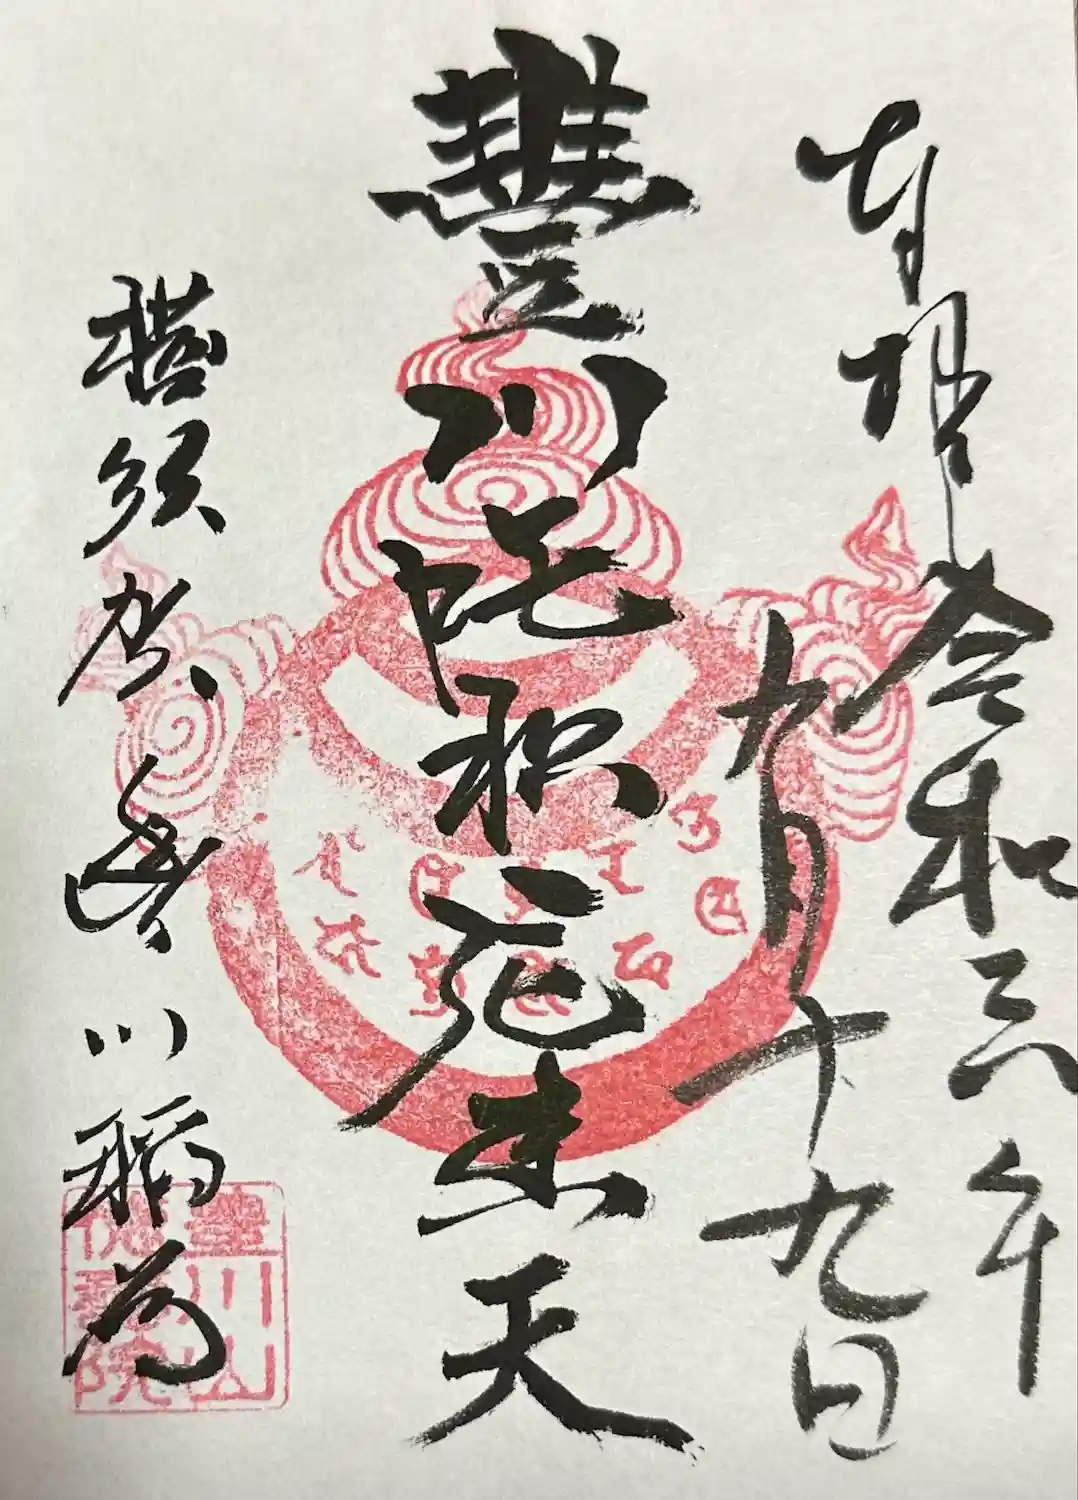 奉拝
令和三年
九月十九日
豐川吒枳尼眞天
横須賀豊川稲荷
豊川山
徳壽院